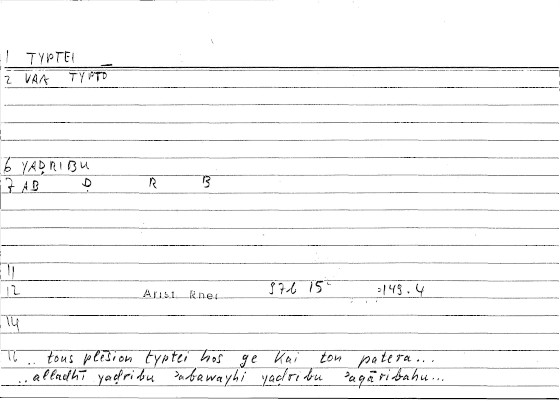 1 TYPTEI
2 VAR TYPTO
6 YAḌRIBU
7 AB Ḍ R B
11
12 Arist Rhet 37b 15 =149.4
14
16 .. tous plēsion typtei hos ge kai ton patera...
..alladhī yaḍribu ʾabawayhi yaḍribu ʾaqāribahu...